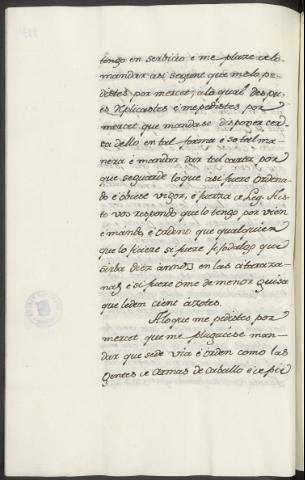 tengo en serbicio e me plaze de lo
mandar asi segunt que me lo pe-
distes por mercet; a lo qual despu-
es Replicastes é me pedistes por
mercet que mandase disponer cer-
ca dello, en tal forma é so tal ma-
nera é mandar dar tal carta por
que se guarde lo que asi fuere ordena-
do é obiese vigor, é fuerza de Ley. A es-
to vos respondo que lo tengo por bien
é mando, é ordeno que qualquiera
que lo ficiere si fuere fijodalgo que
sirba diez annos en las ataraza-
nas, e si fuere ome de menor guisa
que le den cient azotes.
A lo que me pedistes por
mercet que me pluguiese man-
dar que se de via é orden como las
gentes de armas de caballo é de pie